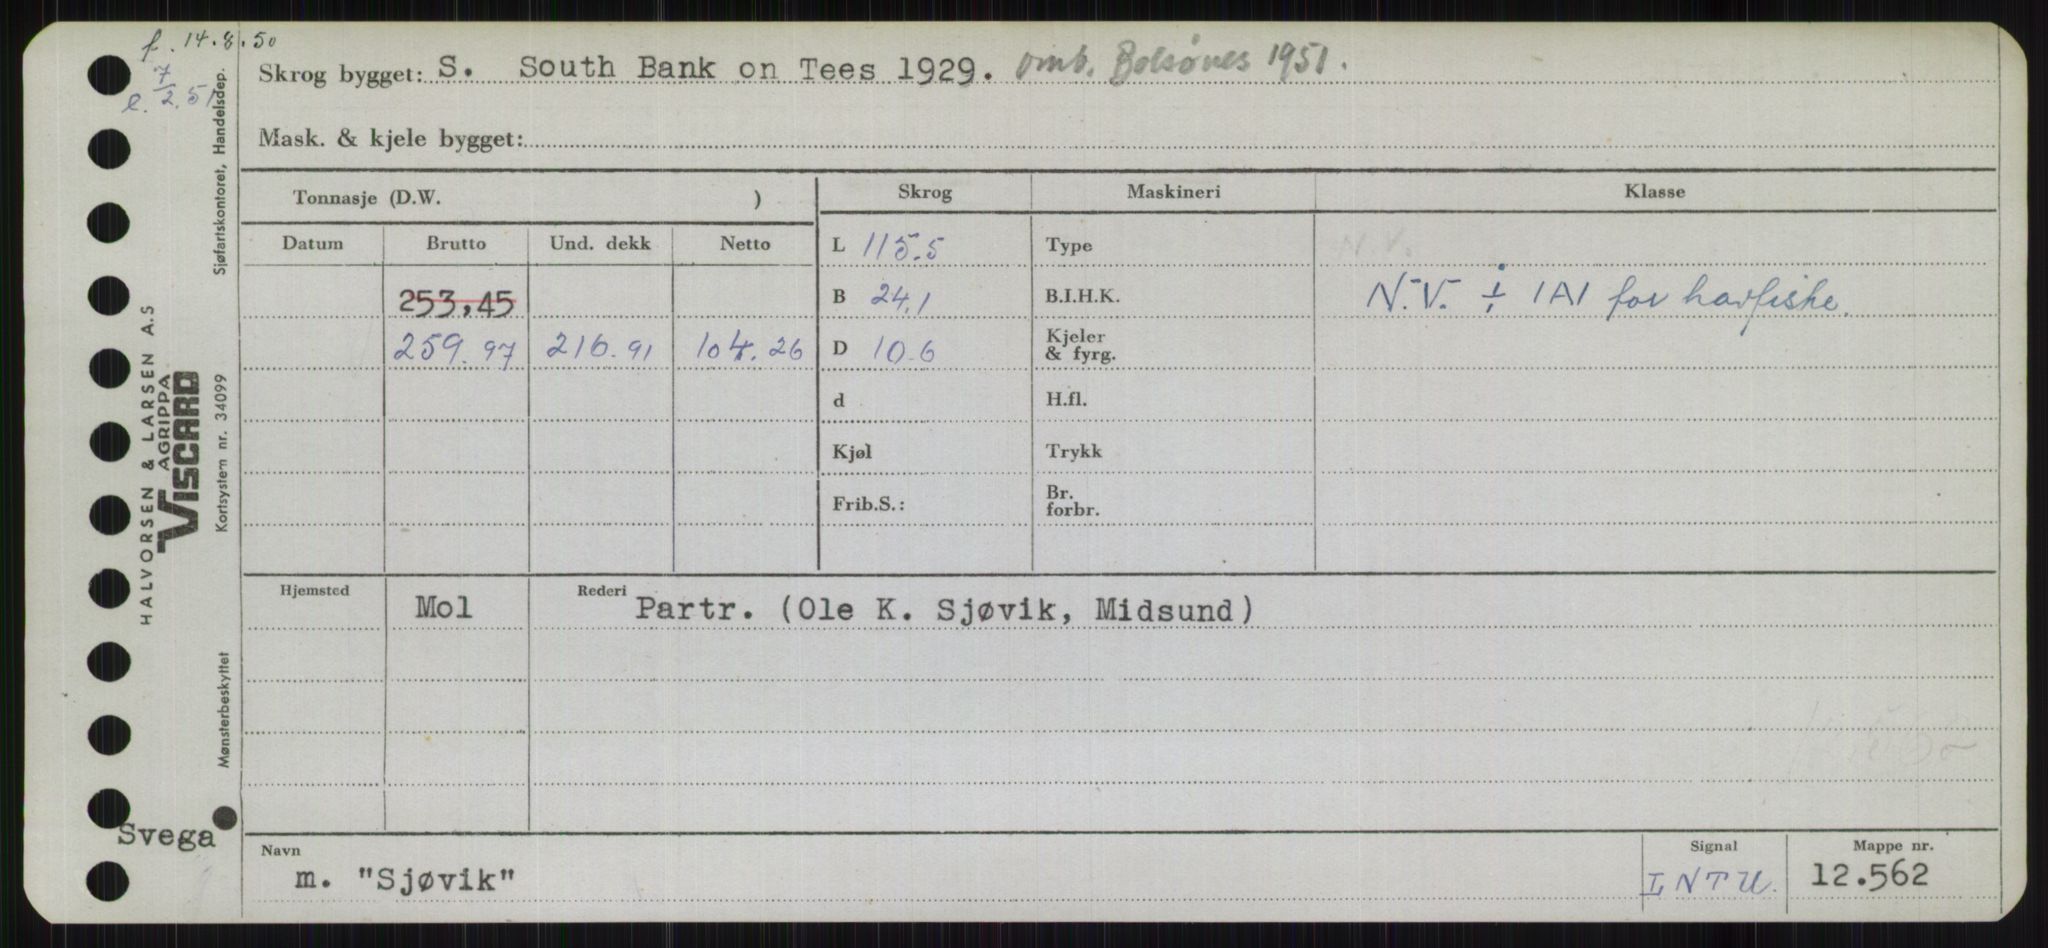 f. 14.8.50
e. 7/2.51
Skrog bygget: S. South Bank on Tees 1929. omb. Bolsønes 1951.
Mask. & kjele bygget:
Tonnasje (D.W. )
Skrog Maskineri Klasse
Datum Brutto Und. dekk Netto
L 115.5 Type N.V.
253,45 B 24,1 B.I.H.K. N.V. ÷ 1A1 for havfiske.
259.97 216.91 104.26 D 10.6 Kjeler
& fyrg.
d H.fl.
Kjøl Trykk
Frib.S.: Br.
forbr.
Hjemsted Mol Rederi Partr. (Ole K. Sjøvik, Midsund)
Svega
Navn m. "Sjøvik"
Signal LNTU.
Mappe nr. 12.562
HALVORSEN & LARSEN A.S
AGRIPPA
VISCARD
Sjøfartskontoret, Handelsdep.
Kortsystem nr. 34099
Mønsterbeskyttet